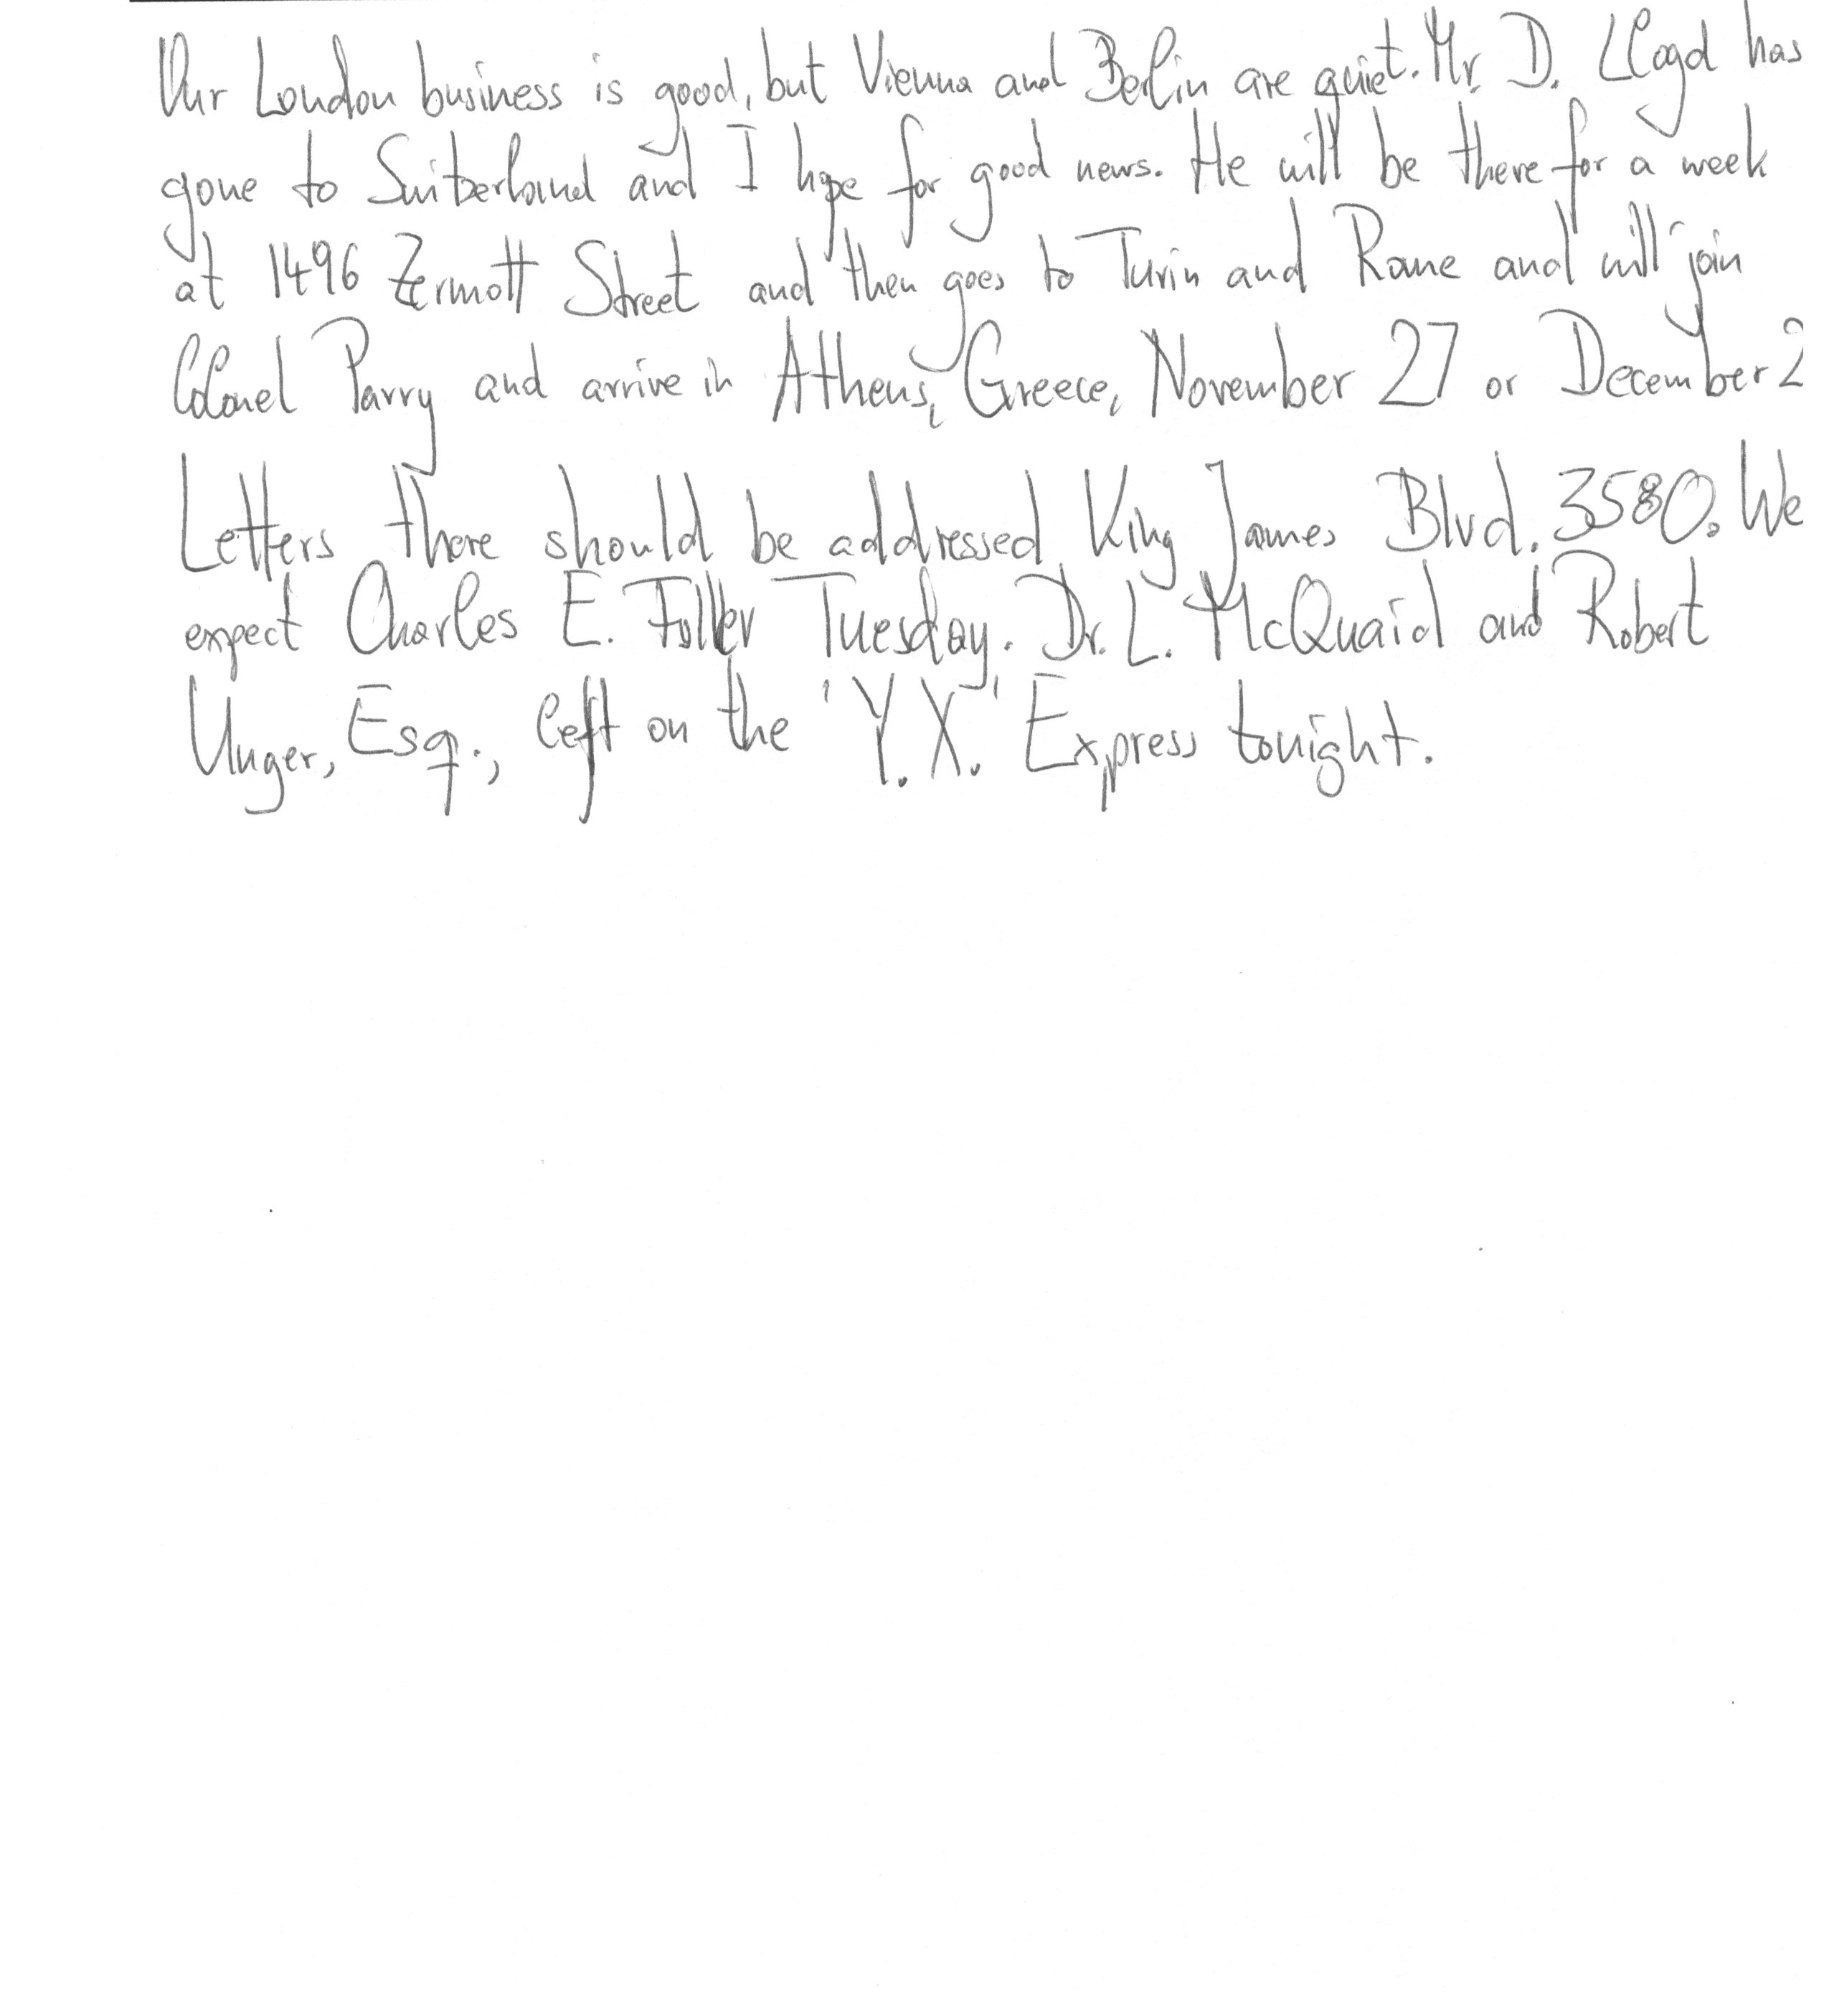 Our London business is good, but Vienna and Berlin are quiet. Mr. D. Lloyd has
gone to Switzerland and I hope for good news. He will be there for a week
at 1496 Zermott Street and then goes to Turin and Rome and will join
Colonel Parry and arrive in Athens, Greece, November 27 or December 2
Letters there should be addressed King James Blvd. 3580. We
expect Charles E. Fuller Tuesday. Dr. L. McQuaid and Robert
Unger, Esq., left on the 'Y.X.' Express tonight.